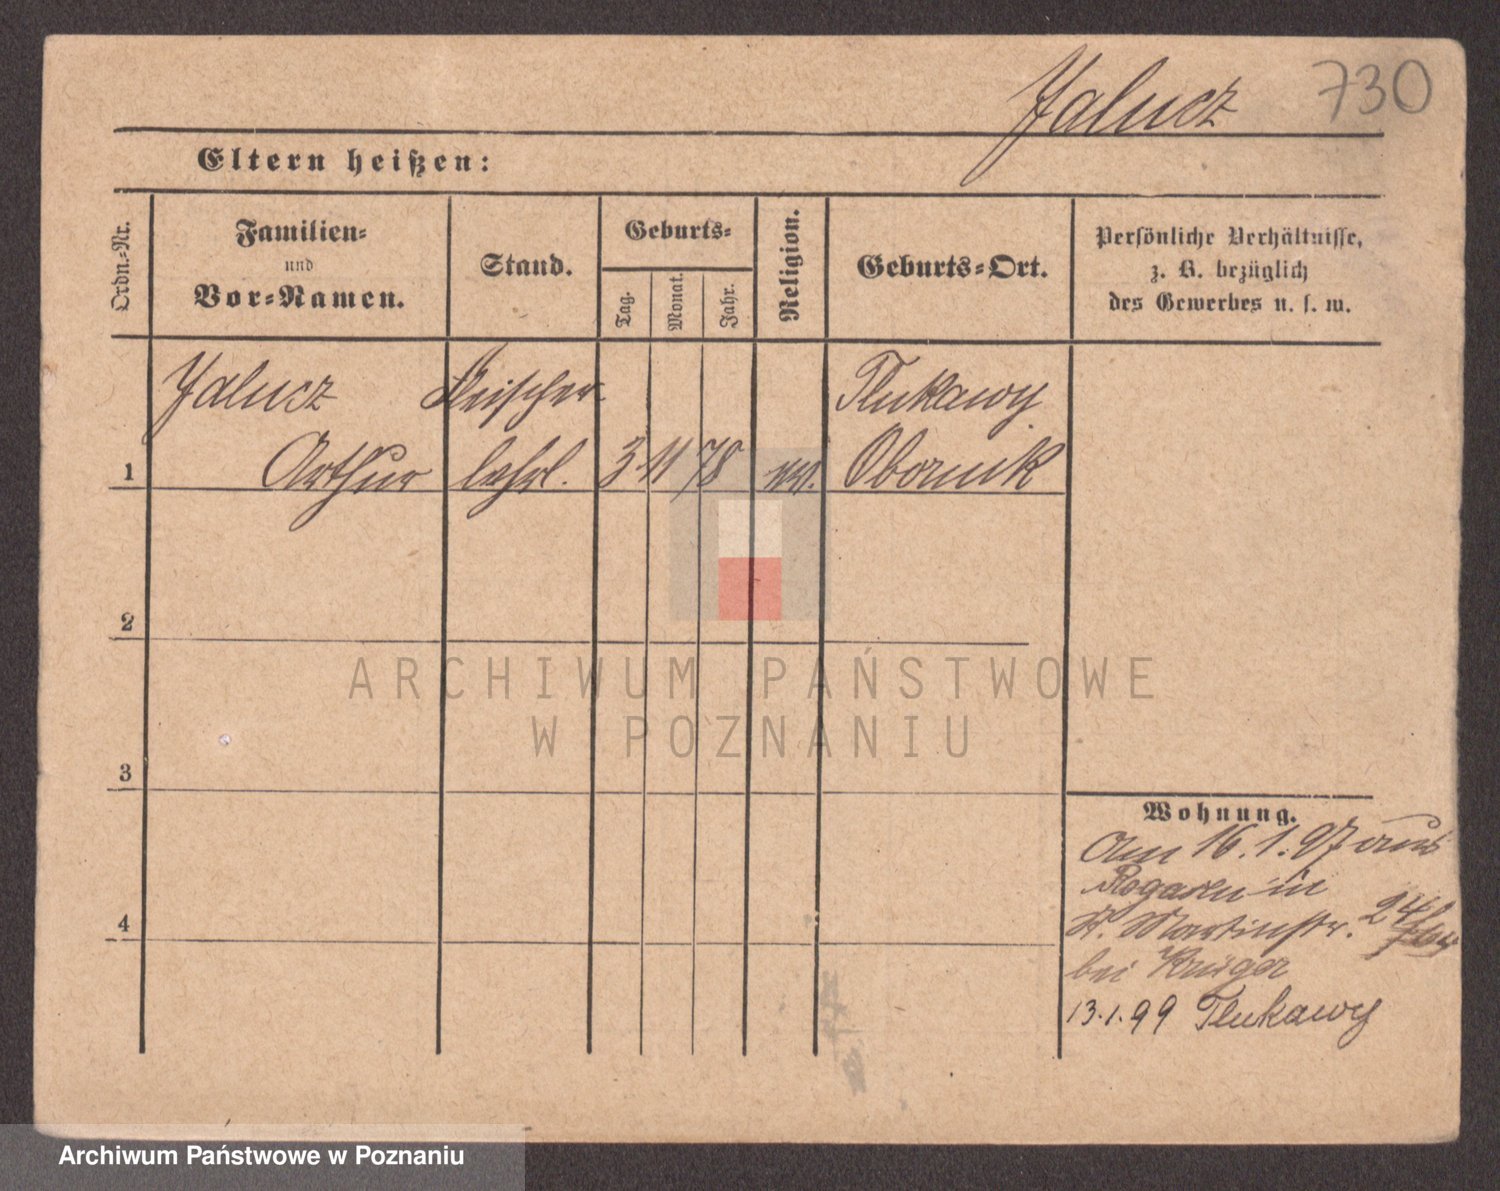 Jalucz 730
Eltern heißen:
Ordn.-Nr.
Familien-
und
Vor-Namen.
Stand.
Geburts-
Tag.
Monat.
Jahr.
Religion.
Geburts-Ort.
Persönliche Verhältnisse,
z. B. bezüglich
des Gewerbes u. s. w.
Jalucz Fleischer- Tlukawy
1 Arthur lehrl. 3 11 78 Obornik
2
3
4
Wohnung.
Am 16.1.97 aus
Rogasen in
St. Martinstr. 24
bei Krüger
13.1.99 Tlukawy
ARCHIWUM PAŃSTWOWE
W POZNANIU
Archiwum Państwowe w Poznaniu